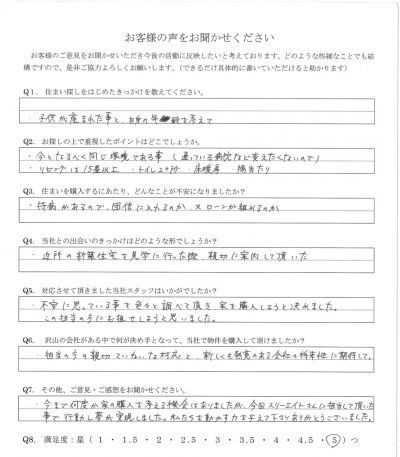 お客様の声をお聞かせください
お客様のご意見をお聞かせいただき今後の活動に反映したいと考えております。どのような些細なことでも結
構ですので、是非ご協力よろしくお願いします。（できるだけ具体的に書いていただけると助かります）
Q1． 住まい探しをはじめたきっかけを教えてください。
・子供が産まれた事と、自身の年齢を考えて
Q2． お探しの上で重視したポイントはどこでしょうか。
・今となるべく同じ環境である事（通っている病院など変えたくないので）
・リビングは15畳以上 ・トイレ2ヶ所 ・床暖房 ・陽当たり
Q3． 住まいを購入するにあたり、どんなことが不安になりましたか？
・持病があるので、団信に入れるのか、又ローンが組めるのか
Q4． 当社との出会いのきっかけはどのような形でしょうか？
・近所の新築住宅を見学に行った際、親切に案内して頂いた
Q5． 対応させて頂きました当社スタッフはいかがでしたか？
・不安に思っている事を色々と調べて頂き、家を購入しようと決めれました。
この担当の方にお任せしようと思いました。
Q6． 沢山の会社がある中で何が決め手となって、当社で物件を購入して頂けましたか？
・担当の方の親切ていねいな対応と、新しくも勢いのある会社の将来性に期待して。
Q7． その他、ご意見・ご感想をお聞かせください。
・今まで何度か家の購入を考える機会はありましたが、今回スリーエイトさんに担当して頂いた
事で行動し夢が実現しました。私たちを動かす力を与えて下さりありがとうございました。
Q8． 満足度：星（ 1 ・ 1.5 ・ 2 ・ 2.5 ・ 3 ・ 3.5 ・ 4 ・ 4.5 ・ 5 ）つ